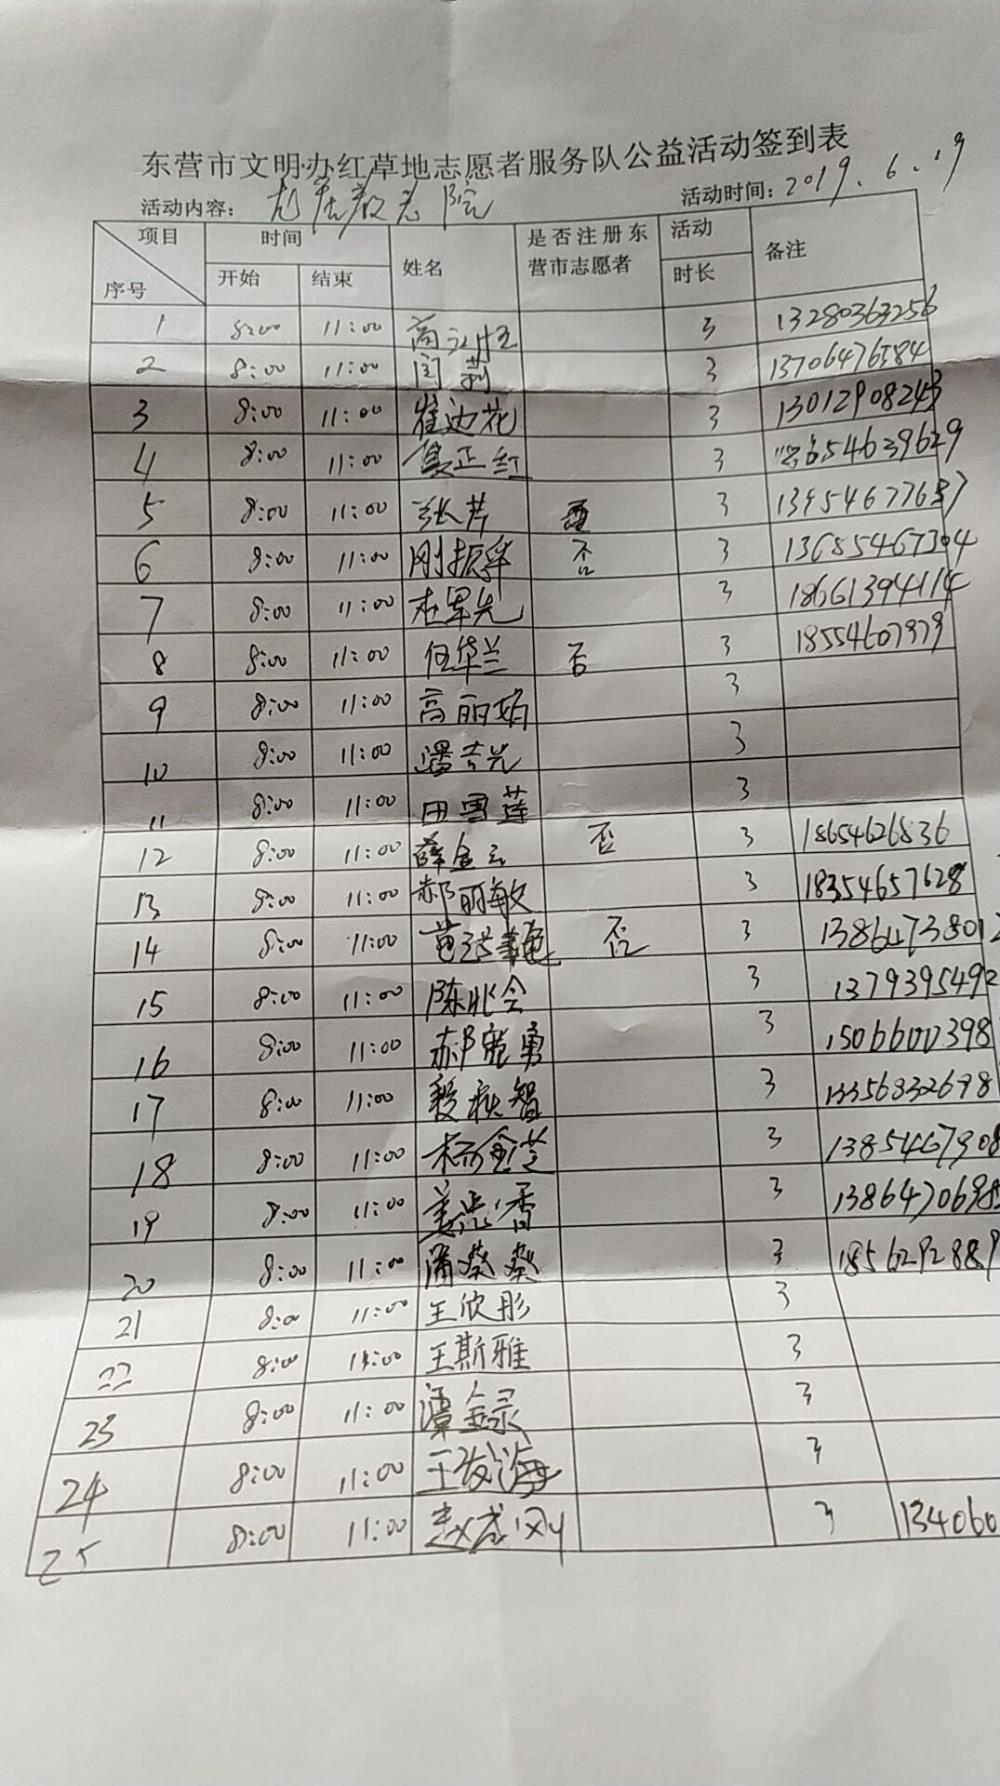 东营市文明办红草地志愿者服务队公益活动签到表
活动内容: 敬老院 活动时间: 2019.6.19
项目 时间 姓名 是否注册东营市志愿者 活动时长 备注
序号 开始 结束
1 8:00 11:00 3 13280363256
2 8:00 11:00 闫莉 3 13706476584
3 8:00 11:00 崔迎花 3 13012908243
4 8:00 11:00 正红 3 18654639629
5 8:00 11:00 张芹 3
6 8:00 11:00 刚振华 否 3 13685467304
7 8:00 11:00 3 18661394114
8 8:00 11:00 任华兰 否 3 18554607979
9 8:00 11:00 高丽娟 3
10 8:00 11:00 潘吉光 3
11 8:00 11:00 田雪莲 3
12 8:00 11:00 薛金云 否 3 18654626836
13 8:00 11:00 郝丽敏 3 18354657628
14 8:00 11:00 否 3 13864738012
15 8:00 11:00 陈兆会 3 1379395492
16 8:00 11:00 郝宪勇 3
17 8:00 11:00 3 13356832698
18 8:00 11:00 杨金芝 3 1385467908
19 8:00 11:00 姜 香 3
20 8:00 11:00 潘葵葵 3 1856292889
21 8:00 11:00 王欣彤 3
22 8:00 11:00 王斯雅 3
23 8:00 11:00 潭金录 3
24 8:00 11:00 王 海 3
25 8:00 11:00 赵 3 134060